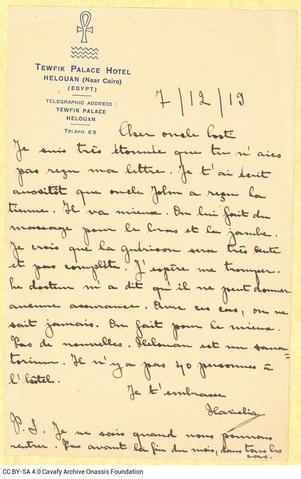 TEWFIK PALACE HOTEL
HELOUAN (Near Cairo)
(EGYPT)
TELEGRAPHIC ADDRESS :
TEWFIK PALACE
HELOUAN
TELEPH. 63
7/12/19
Cher oncle Costa
Je suis très étonnée que tu n'aies
pas reçu ma lettre. Je t'ai écrit
aussitôt que oncle John a reçu la
tienne. Il va mieux. On lui fait du
massage pour le bras et la jambe.
Je crois que la guérison sera très lente
et pas complète. J'espère me tromper.
Le docteur m'a dit qu'il ne peut donner
aucune assurance. Avec ces cas, on ne
sait jamais. On fait pour le mieux.
Pas de nouvelles. Helouan est un sana-
torium. Il n'y a pas 40 personnes à
l'hôtel.
Je t'embrasse
Hariclia
P.S. Je ne sais quand nous pourrons
rentrer. Pas avant la fin du mois, dans tous les
cas.
CC BY-SA 4.0 Cavafy Archive Onassis Foundation